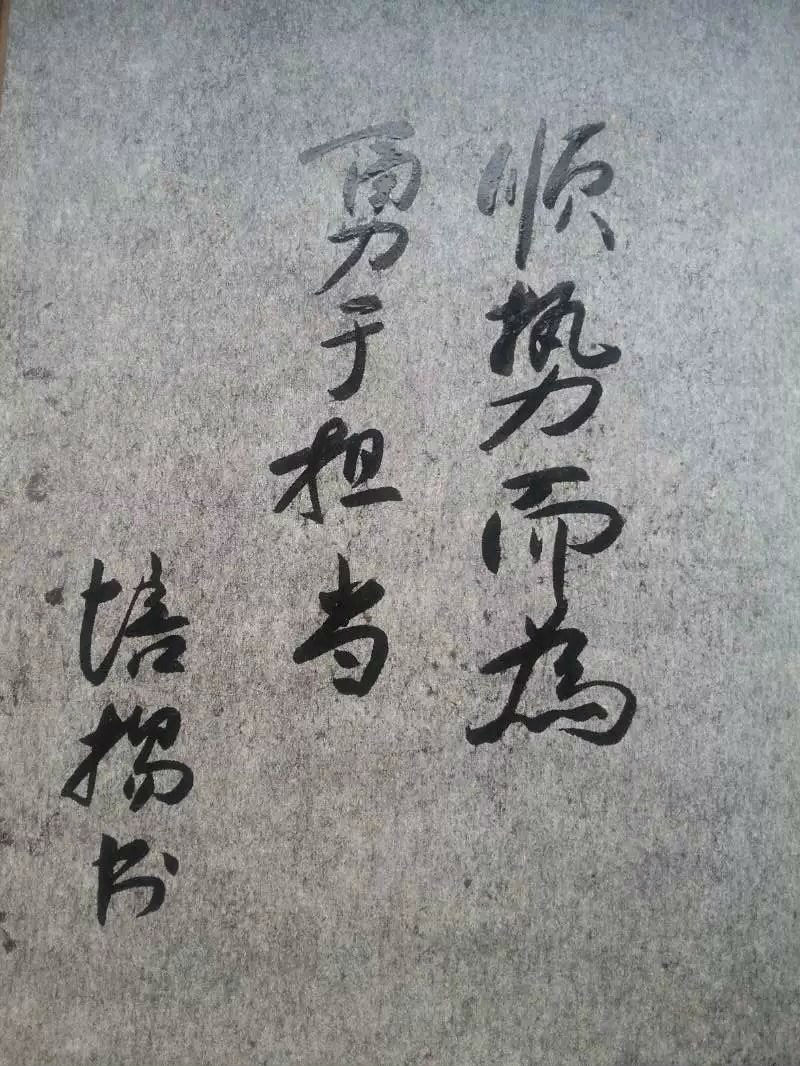 顺势而為
勇于担当
培揚书